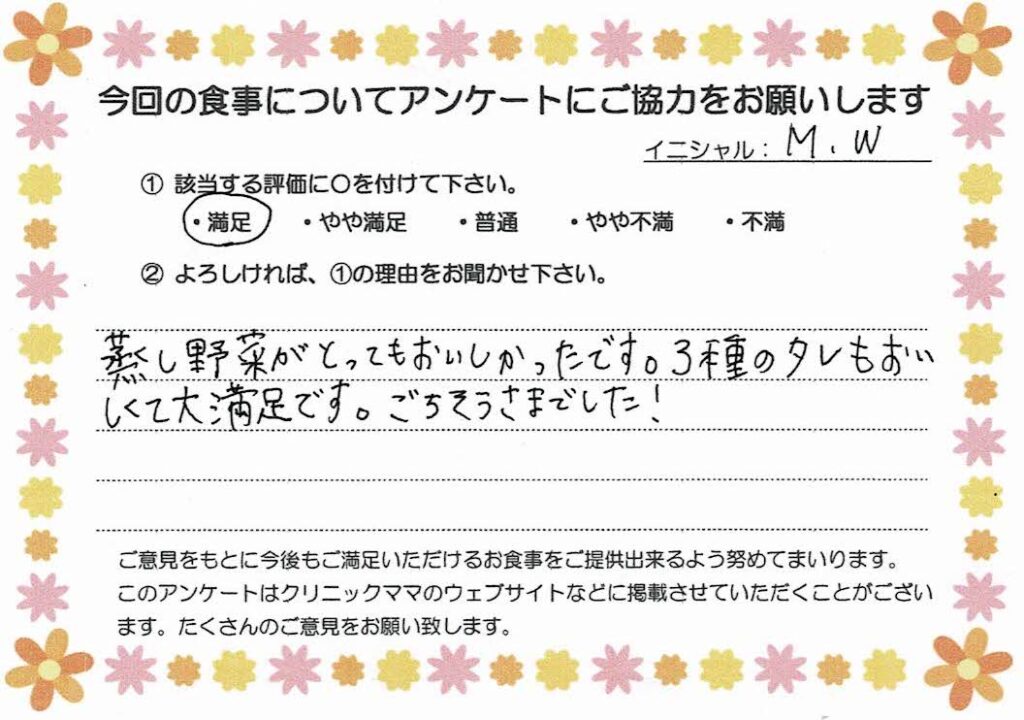 今回の食事についてアンケートにご協力をお願いします
イニシャル： M.W
① 該当する評価に〇を付けて下さい。
・満足 ・やや満足 ・普通 ・やや不満 ・不満
② よろしければ、①の理由をお聞かせ下さい。
蒸し野菜がとってもおいしかったです。3種のタレもおい
しくて大満足です。ごちそうさまでした！
ご意見をもとに今後もご満足いただけるお食事をご提供出来るよう努めてまいります。
このアンケートはクリニックママのウェブサイトなどに掲載させていただくことがござい
ます。たくさんのご意見をお願い致します。